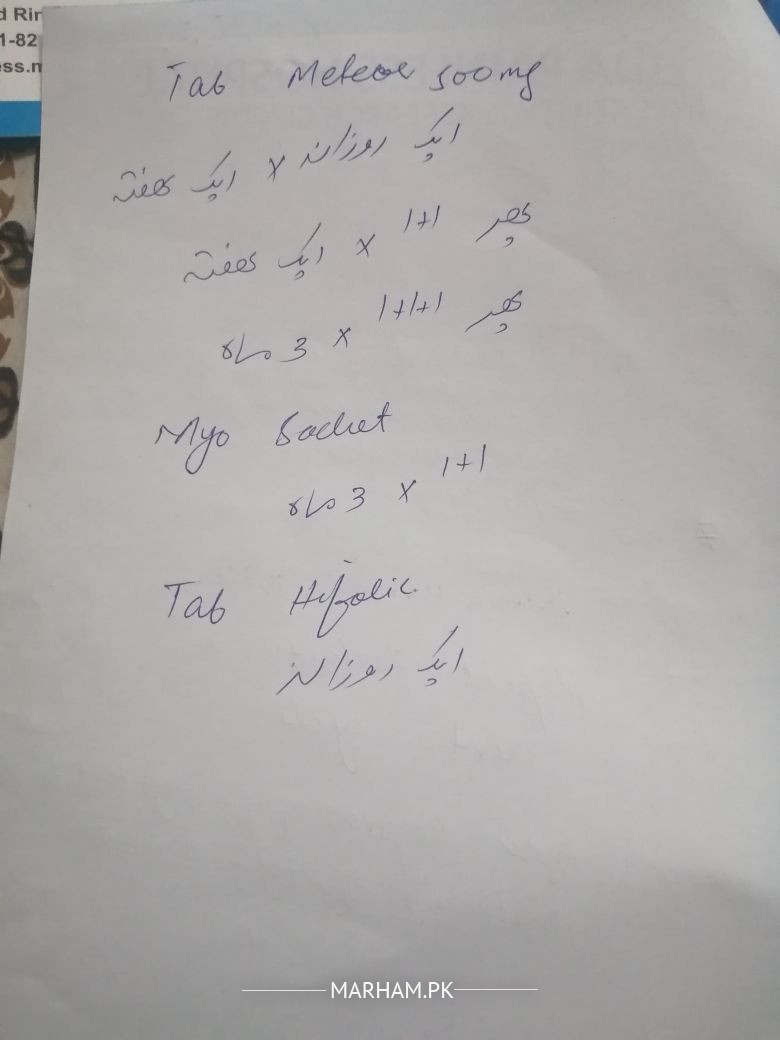 d Rin
1-82
ess.m
Tab Meteor 500mg
ایک روزانہ x ایک ہفتہ
پھر 1+1 x ایک ہفتہ
پھر 1+1+1 x 3 ماہ
Myo Sachet
1+1 x 3 ماہ
Tab Hifolic
ایک روزانہ
MARHAM.PK